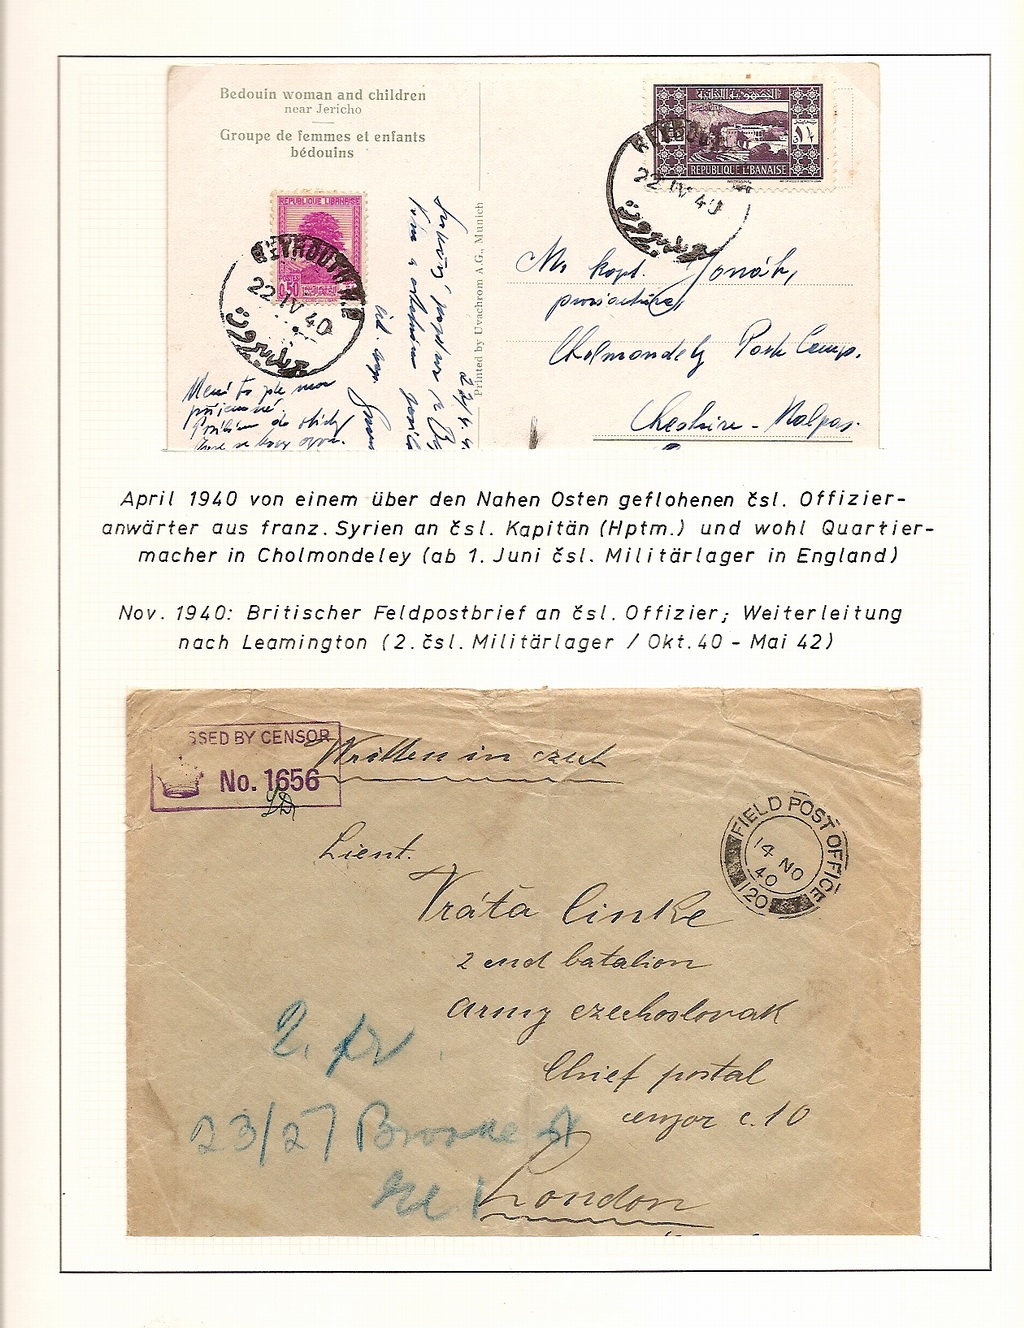 Bedouin woman and children
near Jericho
Groupe de femmes et enfants
bédouins
REPUBLIQUE LIBANAISE
POSTES
0$50
BEYROUTH R.P
22 IV 40
بيروت
Printed by Uvachrom A.G., Munich
الجمهورية اللبنانية
REPUBLIQUE LIBANAISE
BEYROUTH
22 IV 40
بيروت
Mr kapt. Jonák,
Cholmondely Park Camp.
Cheshire - Malpas.
April 1940 von einem über den Nahen Osten geflohenen čsl. Offizier-
anwärter aus franz. Syrien an čsl. Kapitän (Hptm.) und wohl Quartier-
macher in Cholmondeley (ab 1. Juni čsl. Militärlager in England)
Nov. 1940: Britischer Feldpostbrief an čsl. Offizier; Weiterleitung
nach Leamington (2. čsl. Militärlager / Okt. 40 - Mai 42)
SSED BY CENSOR
No. 1656
Written in czech
FIELD POST OFFICE
14 NO
40
120
Lieut.
Vráťa Linke
2 end batalion
Army czechoslovak
Chief postal
cenzor c. 10
London
23/27